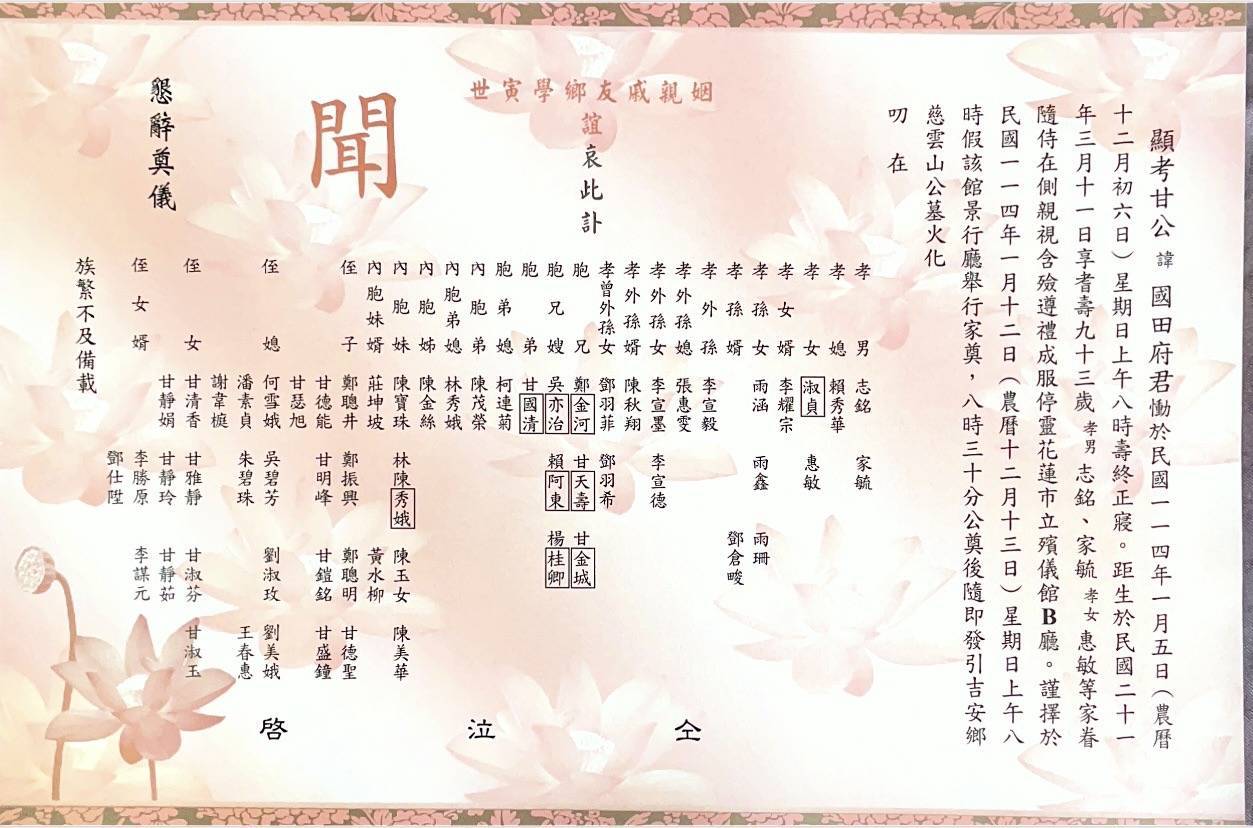 顯考甘公諱國田府君慟於民國一一四年一月五日(農曆
十二月初六日)星期日上午八時壽終正寢。距生於民國二十一
年三月十一日享耆壽九十三歲孝男志銘、家毓孝女惠敏等家眷
隨侍在側親視含殮遵禮成服停靈花蓮市立殯儀館B廳。謹擇於
民國一一四年一月十二日(農曆十二月十三日)星期日上午八
時假該館景行廳舉行家奠,八時三十分公奠後隨即發引吉安鄉
慈雲山公墓火化
叨在
姻親戚友鄉學寅世
誼哀此訃
聞
懇辭奠儀
孝男 志銘 家毓
孝媳 賴秀華
孝女 淑貞 惠敏
孝女婿 李耀宗
孝孫女 雨涵 雨鑫 雨珊
孝孫婿 鄧倉畯
孝外孫 李宣毅
孝外孫媳 張惠雯
孝外孫女 李宣墨 李宣德
孝外孫婿 陳秋翔
孝曾外孫女 鄧羽菲 鄧羽希
胞兄 鄭金河 甘天壽 甘金城
胞兄嫂 吳亦治 賴阿東 楊桂卿
胞弟 甘國清
胞弟媳 柯連菊
內胞弟 陳茂榮
內胞弟媳 林秀娥
內胞姊 陳金絲
內胞妹 陳寶珠 林陳秀娥 陳玉女 陳美華
內胞妹婿 莊坤坡 黃水柳
侄子 鄭聰井 鄭振興 鄭聰明 甘德聖
甘德能 甘明峰 甘鎧銘 甘盛鐘
甘瑟旭
侄媳 何雪娥 吳碧芳 劉淑玫 劉美娥
潘素貞 朱碧珠 王春惠
謝韋榳
侄女 甘清香 甘雅靜 甘淑芬 甘淑玉
甘靜娟 甘靜玲 甘靜茹
侄女婿 李勝原 李謀元
鄧仕陞
族繁不及備載
仝泣啓